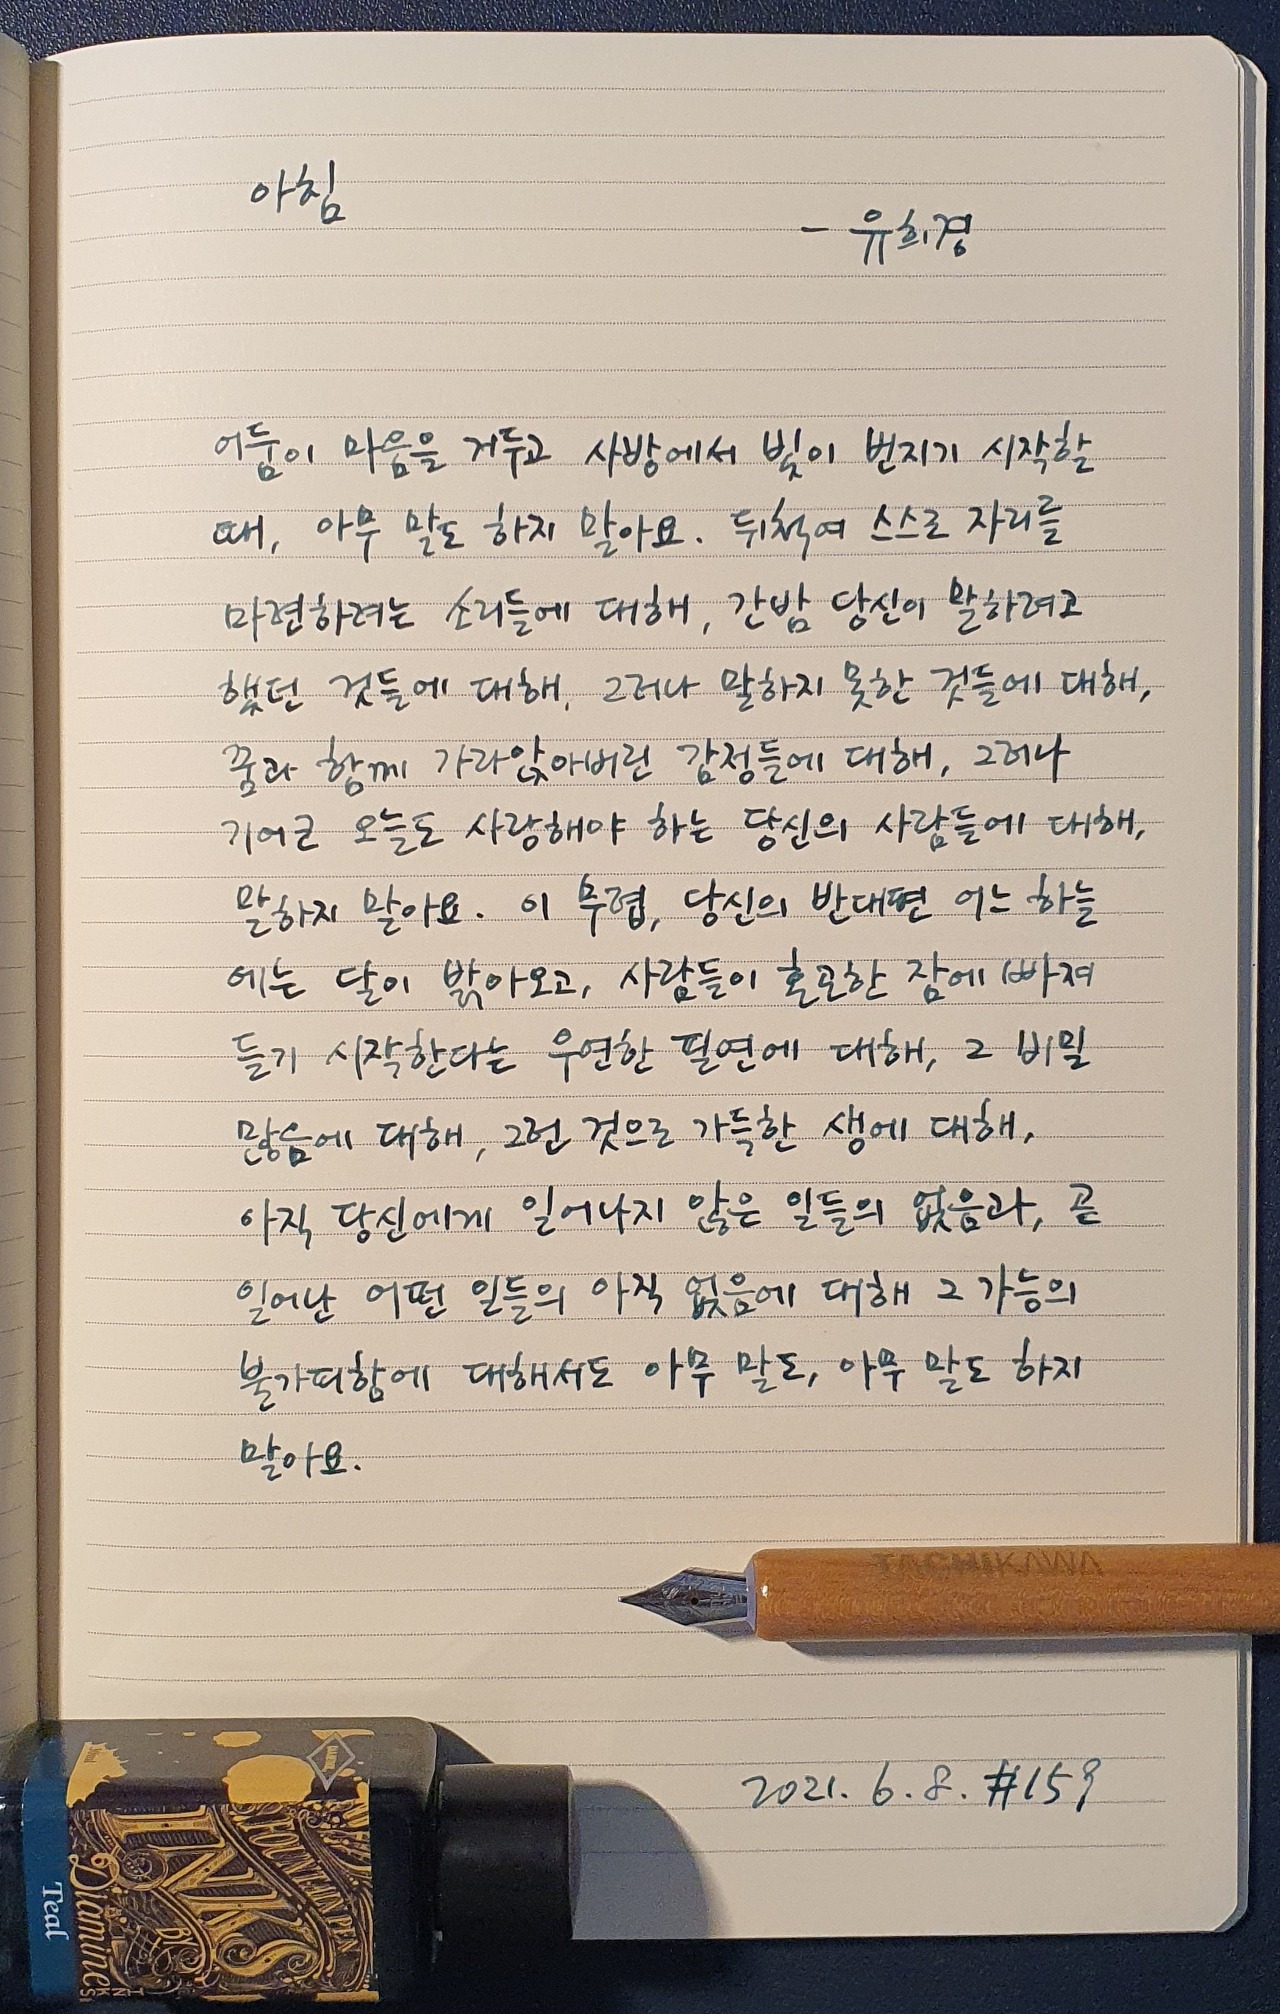 아침
- 유희경
어둠이 마음을 거두고 사방에서 빛이 번지기 시작할
때, 아무 말도 하지 말아요. 뒤척여 스스로 자리를
마련하려는 소리들에 대해, 간밤 당신이 말하려고
했던 것들에 대해, 그러나 말하지 못한 것들에 대해,
꿈과 함께 가라앉아버린 감정들에 대해, 그러나
기어코 오늘도 사랑해야 하는 당신의 사람들에 대해,
말하지 말아요. 이 무렵, 당신의 반대편 어느 하늘
에는 달이 밝아오고, 사람들이 혼곤한 잠에 빠져
들기 시작한다는 우연한 필연에 대해, 그 비밀
많음에 대해, 그런 것으로 가득한 생에 대해,
아직 당신에게 일어나지 않은 일들의 없음과, 곧
일어난 어떤 일들의 아직 없음에 대해 그 가능의
불가피함에 대해서도 아무 말도, 아무 말도 하지
말아요.
TACHIKAWA
2021. 6. 8. #159
FOUNTAIN PEN
INKS
BY
Diamine
Teal